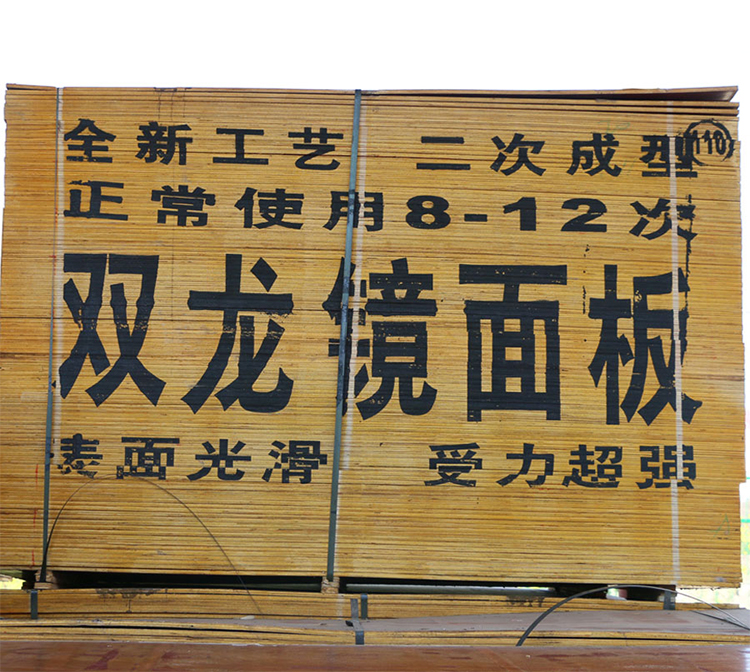 全新工艺 二次成型
正常使用8-12次
双龙镜面板
表面光滑 受力超强